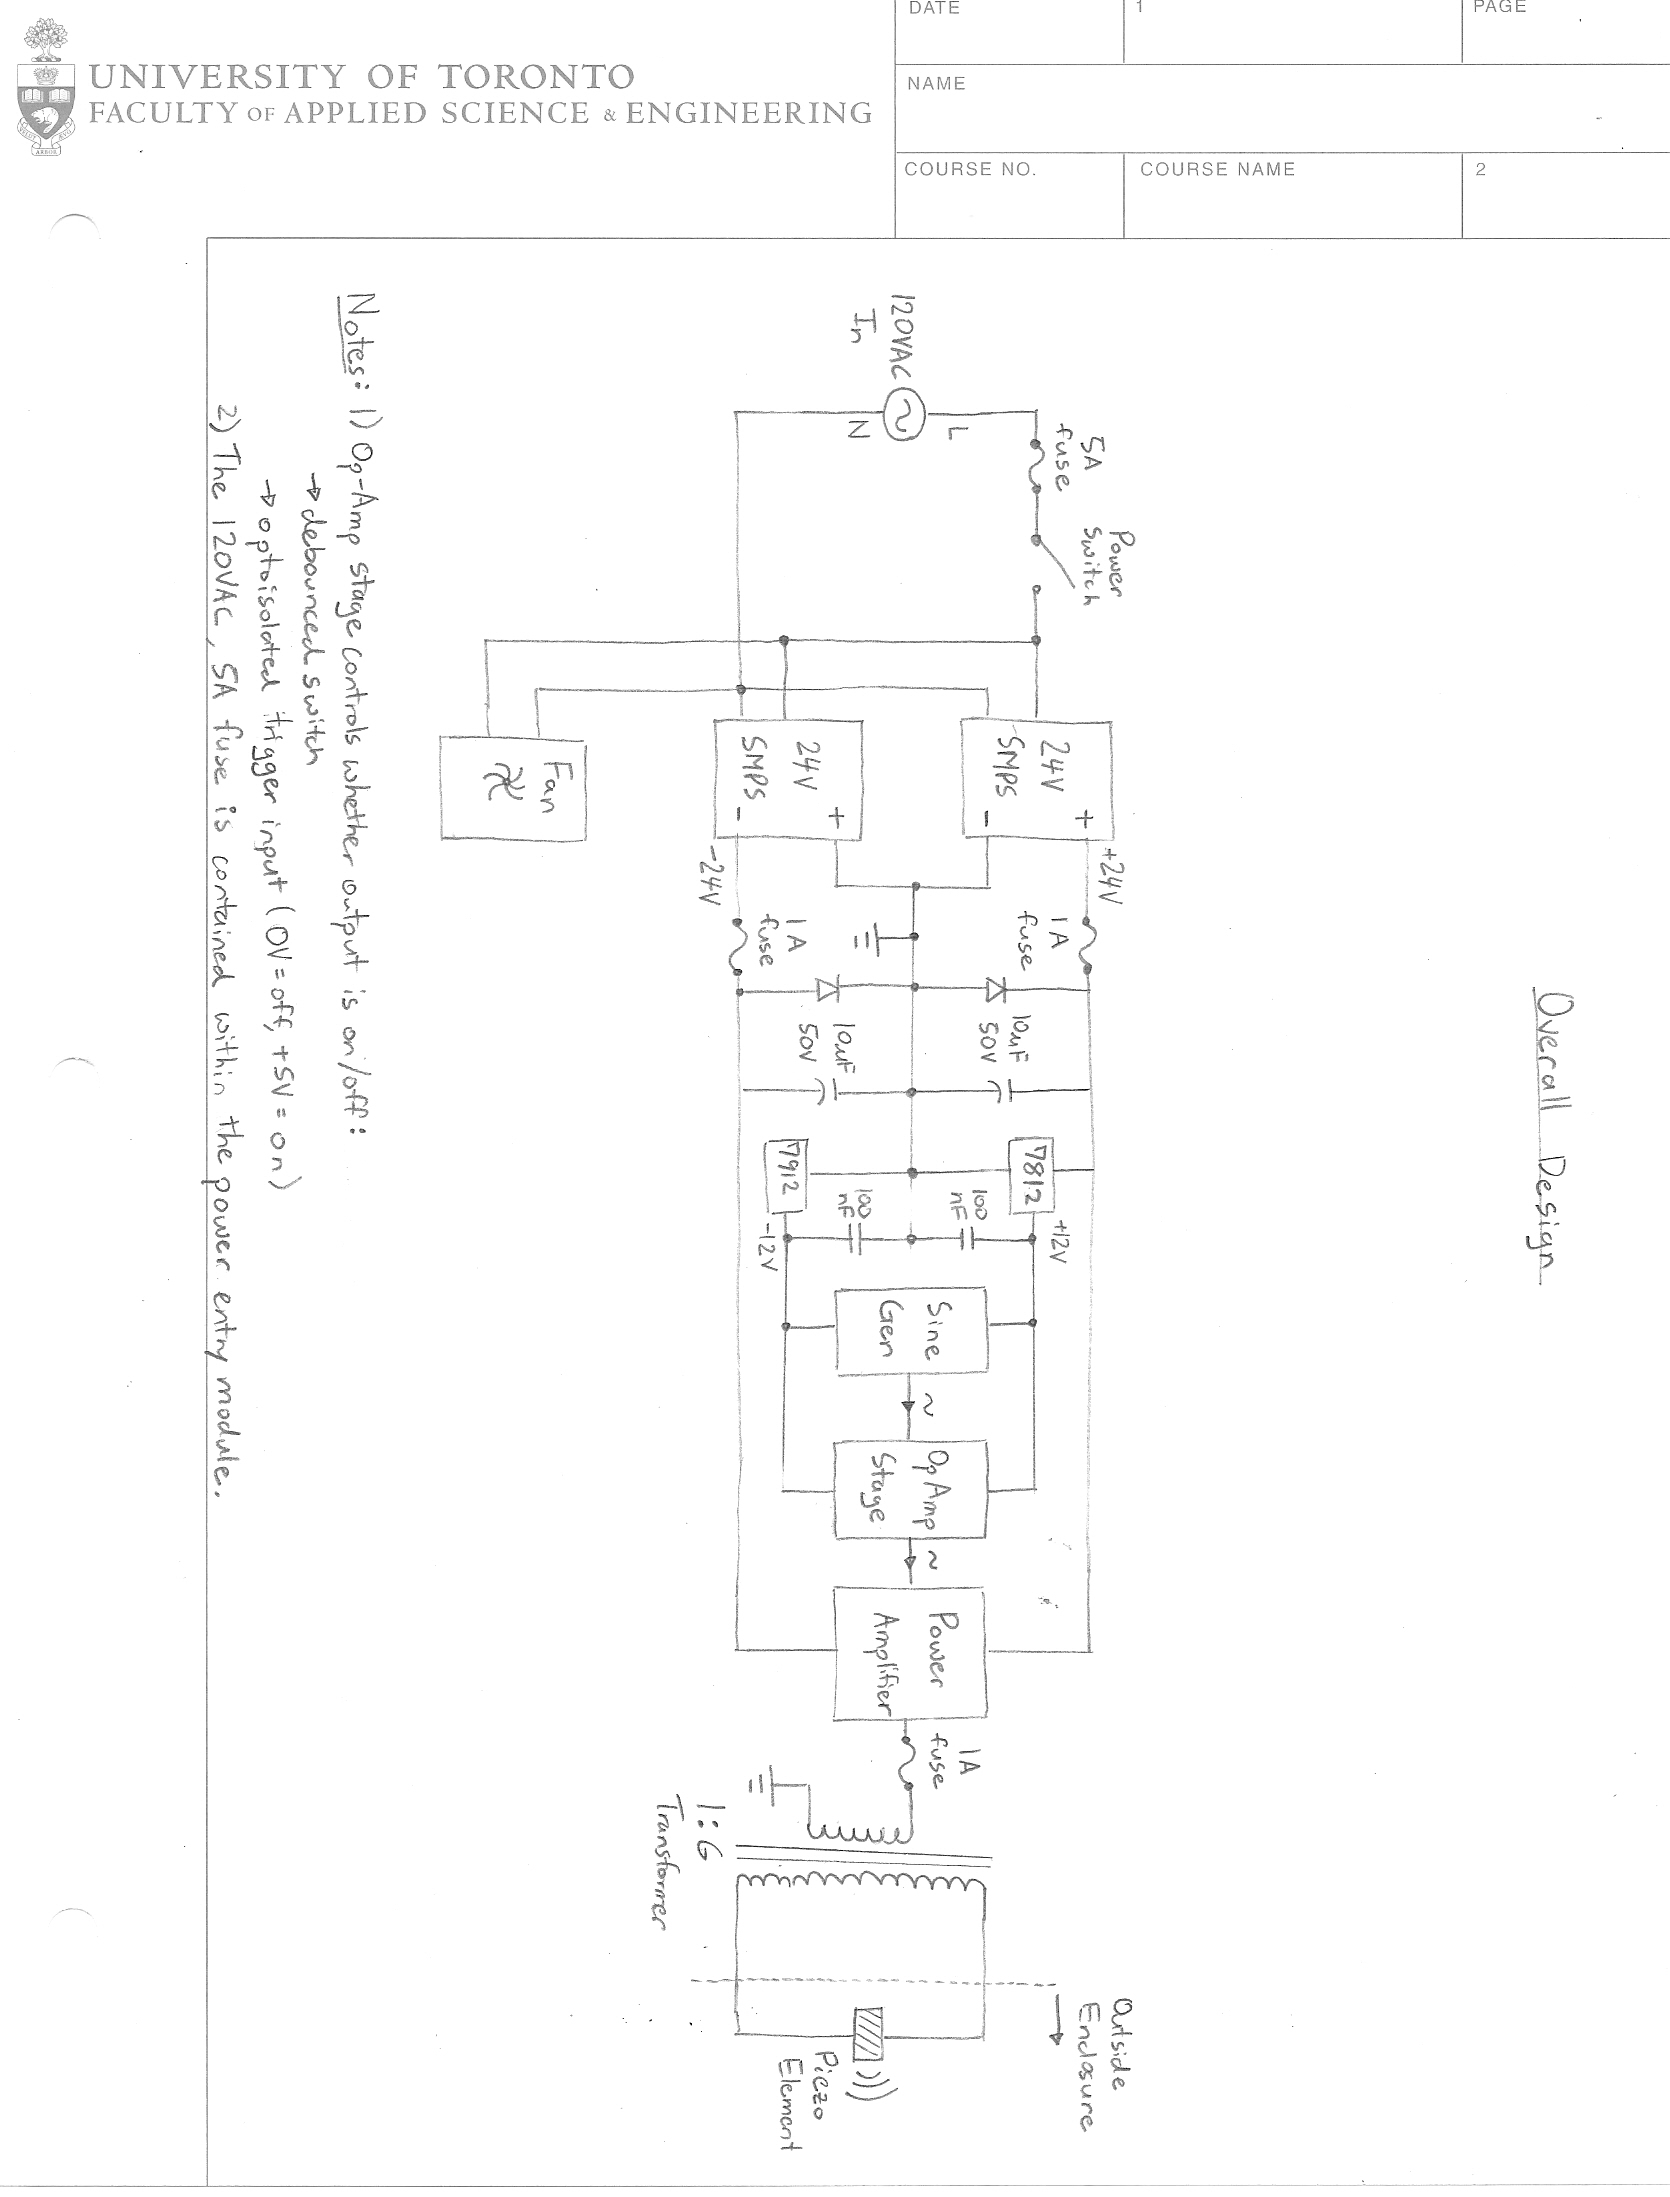 UNIVERSITY OF TORONTO
FACULTY OF APPLIED SCIENCE & ENGINEERING
DATE
1
PAGE
NAME
COURSE NO.
COURSE NAME
2
Overall Design
120VAC
In
L
N
5A
fuse
Power
Switch
24V
SMPS
+
-
24V
SMPS
+
-
Fan
+24V
-24V
1A
fuse
1A
fuse
10uF
50V
10uF
50V
7812
7912
100
nF
100
nF
+12V
-12V
Sine
Gen
~
Op Amp
Stage
~
Power
Amplifier
1A
fuse
1:6
Transformer
Outside
Enclosure
Piezo
Element
Notes: 1) Op-Amp stage controls whether output is on/off:
→ debounced switch
→ optoisolated trigger input (0V = off, +5V = on)
2) The 120VAC, 5A fuse is contained within the power entry module.